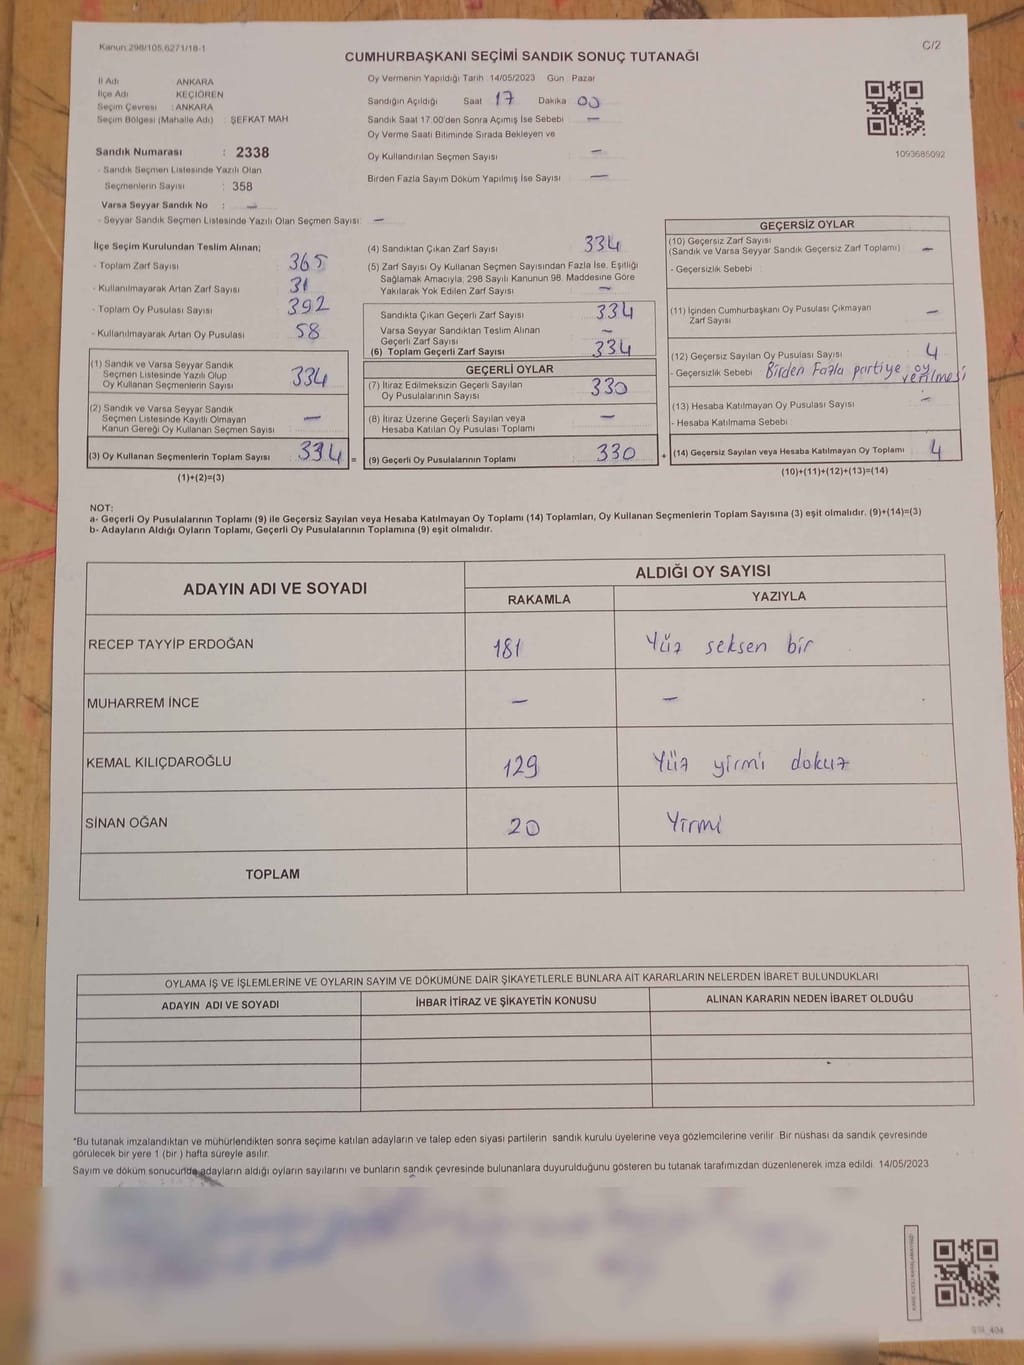 Kanun 298/105,6271/18-1
C/2
CUMHURBAŞKANI SEÇİMİ SANDIK SONUÇ TUTANAĞI
İl Adı : ANKARA
İlçe Adı : KEÇİÖREN
Seçim Çevresi : ANKARA
Seçim Bölgesi (Mahalle Adı) : ŞEFKAT MAH
Sandık Numarası : 2338
- Sandık Seçmen Listesinde Yazılı Olan
Seçmenlerin Sayısı : 358
Varsa Seyyar Sandık No : —
- Seyyar Sandık Seçmen Listesinde Yazılı Olan Seçmen Sayısı: —
Oy Vermenin Yapıldığı Tarih 14/05/2023 Gün Pazar
Sandığın Açıldığı Saat 17 Dakika 00
Sandık Saat 17.00'den Sonra Açımış İse Sebebi —
Oy Verme Saati Bitiminde Sırada Bekleyen ve
Oy Kullandırılan Seçmen Sayısı : —
Birden Fazla Sayım Döküm Yapılmış İse Sayısı : —
1093685092
İlçe Seçim Kurulundan Teslim Alınan;
- Toplam Zarf Sayısı : 365
- Kullanılmayarak Artan Zarf Sayısı : 31
- Toplam Oy Pusulası Sayısı : 392
- Kullanılmayarak Artan Oy Pusulası : 58
(1) Sandık ve Varsa Seyyar Sandık
Seçmen Listesinde Yazılı Olup
Oy Kullanan Seçmenlerin Sayısı : 334
(2) Sandık ve Varsa Seyyar Sandık
Seçmen Listesinde Kayıtlı Olmayan
Kanun Gereği Oy Kullanan Seçmen Sayısı : —
(3) Oy Kullanan Seçmenlerin Toplam Sayısı : 334 =
(1)+(2)=(3)
(4) Sandıktan Çıkan Zarf Sayısı : 334
(5) Zarf Sayısı Oy Kullanan Seçmen Sayısından Fazla İse, Eşitliği
Sağlamak Amacıyla; 298 Sayılı Kanunun 98. Maddesine Göre
Yakılarak Yok Edilen Zarf Sayısı : —
Sandıkta Çıkan Geçerli Zarf Sayısı : 334
Varsa Seyyar Sandıktan Teslim Alınan
Geçerli Zarf Sayısı : —
(6) Toplam Geçerli Zarf Sayısı : 334
GEÇERLİ OYLAR
(7) İtiraz Edilmeksizin Geçerli Sayılan
Oy Pusulalarının Sayısı : 330
(8) İtiraz Üzerine Geçerli Sayılan veya
Hesaba Katılan Oy Pusulası Toplamı : —
(9) Geçerli Oy Pusulalarının Toplamı : 330 +
GEÇERSİZ OYLAR
(10) Geçersiz Zarf Sayısı
(Sandık ve Varsa Seyyar Sandık Geçersiz Zarf Toplamı) : —
- Geçersizlik Sebebi :
(11) İçinden Cumhurbaşkanı Oy Pusulası Çıkmayan
Zarf Sayısı : —
(12) Geçersiz Sayılan Oy Pusulası Sayısı : 4
- Geçersizlik Sebebi Birden Fazla partiye oy verilmesi
(13) Hesaba Katılmayan Oy Pusulası Sayısı : —
- Hesaba Katılmama Sebebi :
(14) Geçersiz Sayılan veya Hesaba Katılmayan Oy Toplamı : 4
(10)+(11)+(12)+(13)=(14)
NOT:
a- Geçerli Oy Pusulalarının Toplamı (9) ile Geçersiz Sayılan veya Hesaba Katılmayan Oy Toplamı (14) Toplamları, Oy Kullanan Seçmenlerin Toplam Sayısına (3) eşit olmalıdır. (9)+(14)=(3)
b- Adayların Aldığı Oyların Toplamı, Geçerli Oy Pusulalarının Toplamına (9) eşit olmalıdır.
ADAYIN ADI VE SOYADI
ALDIĞI OY SAYISI
RAKAMLA YAZIYLA
RECEP TAYYİP ERDOĞAN 181 Yüz seksen bir
MUHARREM İNCE — —
KEMAL KILIÇDAROĞLU 129 Yüz yirmi dokuz
SİNAN OĞAN 20 Yirmi
TOPLAM
OYLAMA İŞ VE İŞLEMLERİNE VE OYLARIN SAYIM VE DÖKÜMÜNE DAİR ŞİKAYETLERLE BUNLARA AİT KARARLARIN NELERDEN İBARET BULUNDUKLARI
ADAYIN ADI VE SOYADI İHBAR İTİRAZ VE ŞİKAYETİN KONUSU ALINAN KARARIN NEDEN İBARET OLDUĞU
*Bu tutanak imzalandıktan ve mühürlendikten sonra seçime katılan adayların ve talep eden siyasi partilerin sandık kurulu üyelerine veya gözlemcilerine verilir. Bir nüshası da sandık çevresinde
görülecek bir yere 1 (bir ) hafta süreyle asılır.
Sayım ve döküm sonucunda adayların aldığı oyların sayılarını ve bunların sandık çevresinde bulunanlara duyurulduğunu gösteren bu tutanak tarafımızdan düzenlenerek imza edildi 14/05/2023